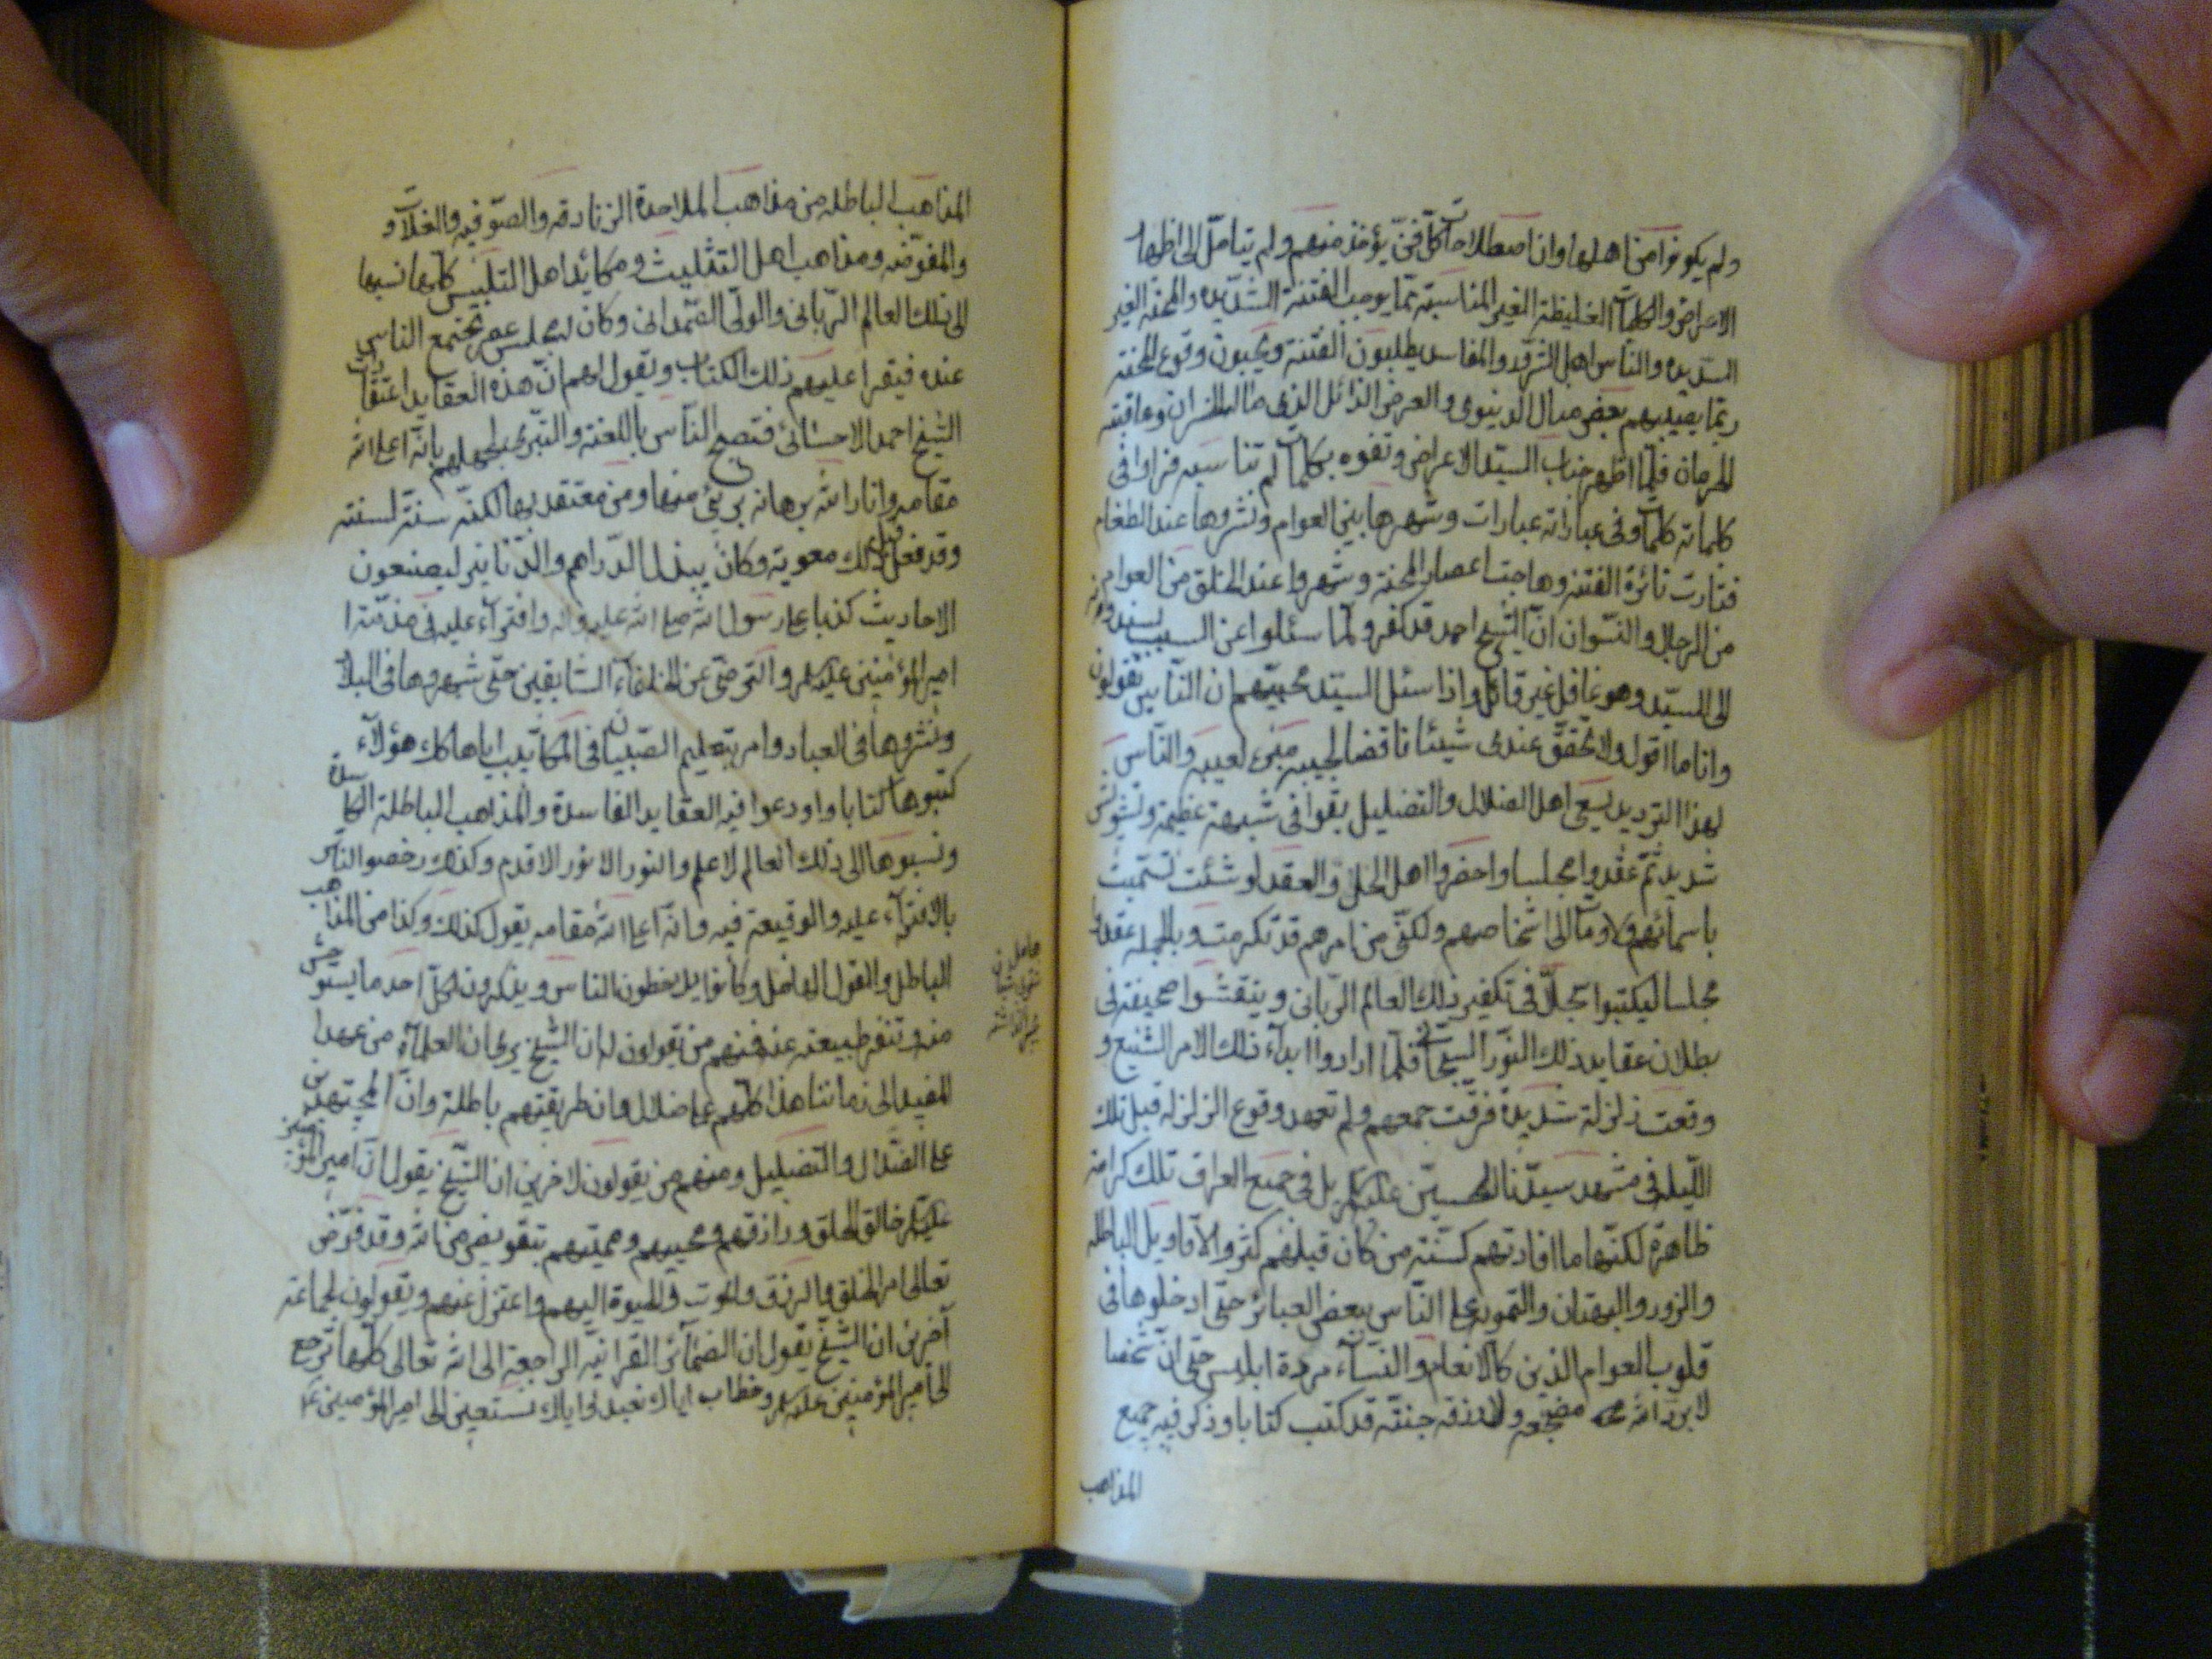 ولم يكونوا من اهلها وان اصطلاحات كل فن يؤخذ منهم ولم يتامل الى اظهار
الاعراض والكلمات الغليظة الغير المناسبة مما يوجب الفتنة الشديده والمحنة الغير
السديده والناس اهل الشر والمفاسد يطلبون الفتنة ويحبون وقوع المحنة
ربما يصيبهم بعض منال الدنيوى والعرض الزائل الذى مآله الخسران وعاقبته
الحرمان فلما اظهر جناب السيد الاعراض وتفوه بكلمات لم تناسبه فزادوا فى
كلماته كلمات وفى عباراته عبارات وشهروها بين العوام ونشروها عند الطغام
فثارت نائرة الفتنه وهاجت اعصار المحنة وشهروا عند الخلق من العوام
من الرجال والنسوان ان الشيخ احمد قد كفر ولما سئلوا عن السبب يسندونه
الى السيد وهو غافل غير قائل واذا سئل السيد مجيبهم ان الناس يقولون
وانا ما اقول ولا تحقق عندى شيئا ناقضا لجيبه مبنى لعيبه والناس
لهذا الترديد يسعى اهل الضلال والتضليل بقوا فى شبهة عظيمة وتشويش
شديد ثم عقدوا مجلسا واحضروا اهل الحل والعقد لو شئت لسميت
باسمائهم ولاومأت الى اشخاصهم ولكنى من امرهم قد تكرمت وبالجمله عقدوا
مجلسا ليكتبوا سجلا فى تكفير ذلك العالم الربانى وينقشوا صحيفة فى
بطلان عقايد ذلك النور السبحانى فلما ارادوا ابداء ذلك الامر الشنيع و
وقعت زلزلة شديدة فرقت جمعهم ولم تعهد وقوع الزلزله قبل تلك
الليلة فى مشهد سيدنا الحسين عليه السلام بل فى جميع العراق تلك كرامة
ظاهرة لكنها ما افادتهم كسنة من كان قبلهم كثروا الاقاويل الباطله
والزور والبهتان والتمويه على الناس ببعض العبائر حتى ادخلوها فى
قلوب العوام الذين كالانعام والنساء مردة ابليس حتى ان شخصا
لا برد الله مضجعه ولا رزقه جنته قد كتب كتابا وذكر فيه جميع
المذاهب
المذاهب الباطله من مذاهب الملاحدة الزنادقه والصوفيه والغلات و
والمفوضه ومذاهب اهل التثليث ومكائد اهل التلبيس كلها نسبها
الى ذلك العالم الربانى والولى الصمدانى وكان يجلس عصر يجتمع الناس
عنده فيقرا عليهم ذلك الكتاب ويقول لهم ان هذه العقايد اعتقادات
الشيخ احمد الاحسائى فتصيح الناس باللعنة والتبرى لجهلهم بانه اعلى الله
مقامه وانار الله برهانه برىئ منها ومن معتقديها لكنه سنة لسنة
وقد فعل قبل ذلك معوية وكان يبذل الدراهم والدنانير ليصنعون
الاحاديث كذبا على رسول الله صلى الله عليه واله وافتراء عليه فى مذمة ا
امير المؤمنين عليه السلام والترضى عن الخلفاء السابقين حتى شهروها فى البلاد
ونشروها فى العباد وامر بتعليم الصبيان فى المكاتيب اياها كك هؤلاء
كتبوها كتابا واودعوا فيه العقايد الفاسدة والمذاهب الباطلة الكاسدة
ونسبوها الى ذلك العالم لاعلم والنور الانور الاقدم وكذلك رخصوا الناس
بالافتراء عليه والوقيعة فيه وانه اعلى الله مقامه يقول كذلك وكذا من المذاهب
الباطل والقول الهامل وكانوا يلاحظون الناس ويذكرون لكل احد ما يستوحش
منه وتنفر طبيعته عنه فمنهم من يقولون له ان الشيخ يرى ان العلماء من عهد ا
المفيد الى زماننا هذا كلهم على ضلال وان طريقتهم باطلة وان المجتهدين
على الضلال والتضليل ومنهم من يقولون لاخرين ان الشيخ يقول ان امير المؤمنين
عليه السلام خالق الخلق ورازقهم ومحييهم ومميتهم بتفويض من الله وقد فوض
تعالى امر الخلق والرزق والموت والحيوة اليهم واعتزل عنهم ويقولون لجماعة
آخرين ان الشيخ يقول ان الضمائر القرانيه الراجعة الى الله تعالى كلها ترجع
الى امير المؤمنين عليه السلام وخطاب اياك نعبد واياك نستعين الى امير المؤمنين ع